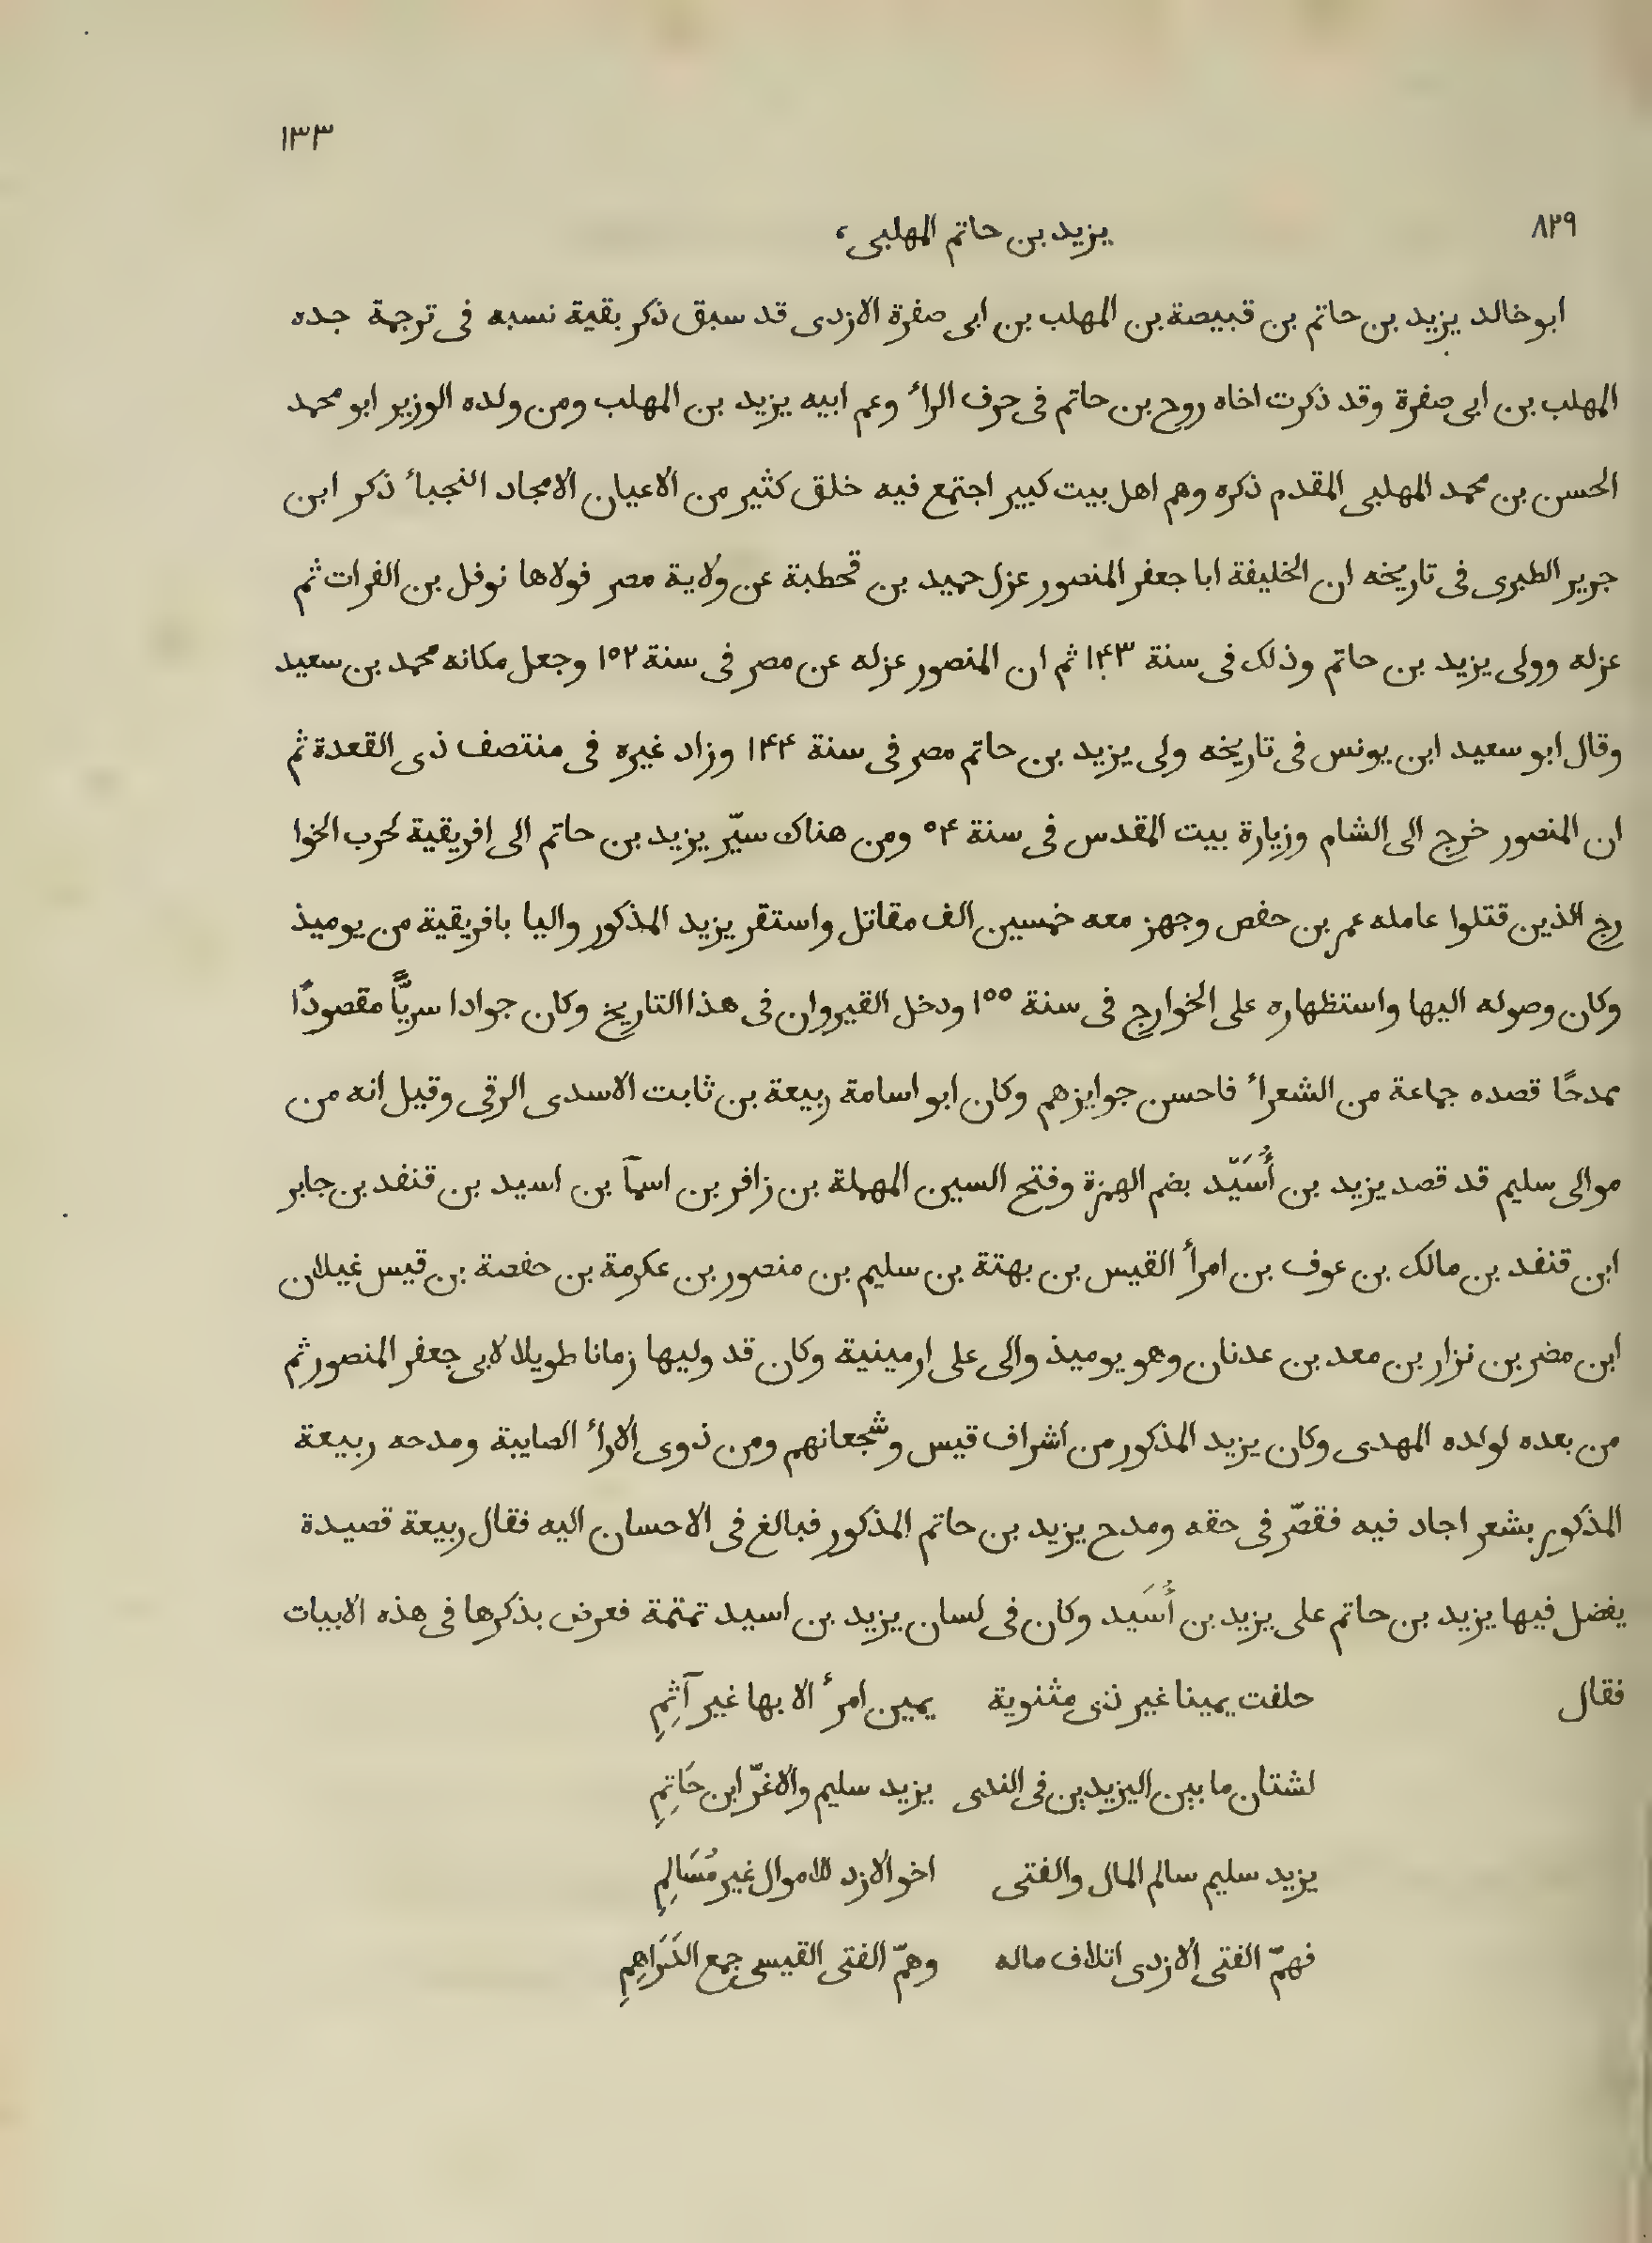 ١٣٣
٨٢٩
يزيد بن حاتم المهلبى،
ابو خالد يزيد بن حاتم بن قبيصة بن المهلب بن ابى صفرة الازدى قد سبق ذكر بقية نسبه فى ترجمة جده
المهلب بن ابى صفرة وقد ذكرت اخاه روح بن حاتم فى حرف الراء وعم ابيه يزيد بن المهلب ومن ولده الوزير ابو محمد
الحسن بن محمد المهلبى المقدم ذكره وهم اهل بيت كبير اجتمع فيه خلق كثير من الاعيان الامجاد النجباء ذكر ابن
جرير الطبرى فى تاريخه ان الخليفة ابا جعفر المنصور عزل حميد بن قحطبة عن ولاية مصر فولاها نوفل بن الفرات ثم
عزله وولى يزيد بن حاتم وذلك فى سنة ١۴٣ ثم ان المنصور عزله عن مصر فى سنة ١٥٢ وجعل مكانه محمد بن سعيد
وقال ابو سعيد ابن يونس فى تاريخه ولى يزيد بن حاتم مصر فى سنة ١۴۴ وزاد غيره فى منتصف ذى القعدة ثم
ان المنصور خرج الى الشام وزيارة بيت المقدس فى سنة ٥۴ ومن هناك سيّر يزيد بن حاتم الى افريقية لحرب الخوا
رج الذين قتلوا عامله عمر بن حفص وجهز معه خمسين الف مقاتل واستقر يزيد المذكور واليا بافريقية من يوميذ
وكان وصوله اليها واستظهاره على الخوارج فى سنة ١٥٥ ودخل القيروان فى هذا التاريخ وكان جوادا سريًّا مقصودًا
ممدحًا قصده جماعة من الشعراء فاحسن جوايزهم وكان ابو اسامة ربيعة بن ثابت الاسدى الرقى وقيل انه من
موالى سليم قد قصد يزيد بن أُسَيّد بضم الهمزة وفتح السين المهملة بن زافر بن اسمآ بن اسيد بن قنفد بن جابر
ابن قنفد بن مالك بن عوف بن امرأ القيس بن بهتة بن سليم بن منصور بن عكرمة بن حفصة بن قيس غيلان
ابن مضر بن نزار بن معد بن عدنان وهو يوميذ والى على ارمينية وكان قد وليها زمانا طويلا لابى جعفر المنصور ثم
من بعده لولده المهدى وكان يزيد المذكور من اشراف قيس وشجعانهم ومن ذوى الاراء الصايبة ومدحه ربيعة
المذكور بشعر اجاد فيه فقصّر فى حقه ومدح يزيد بن حاتم المذكور فبالغ فى الاحسان اليه فقال ربيعة قصيدة
يفضل فيها يزيد بن حاتم على يزيد بن أُسَيد وكان فى لسان يزيد بن اسيد تمتمة فعرض بذكرها فى هذه الابيات
فقال حلفت يمينا غير ذى مثنوية يمين امرأ الا بها غير آثِمِ
لشتان ما بين اليزيدين فى الندى يزيد سليم والاغرّ ابن حَاتِمِ
يزيد سليم سالم المال والفتى اخو الازد للاموال غير مُسَالِمِ
فهمّ الفتى الازدى اتلاف ماله وهمّ الفتى القيسى جمع الدَرَاهِمِ